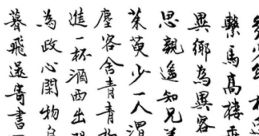 繫馬高樓垂
異鄉為異客
思親遙知兄弟
茱萸少一人渭
塵客舍青青
進一杯酒西出陽
為政心閒物自
暮飛還寄書